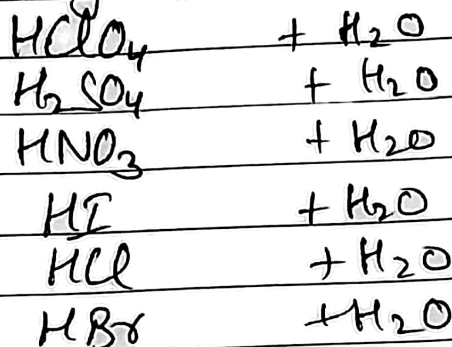 HClO₄ + H₂O
H₂SO₄ + H₂O
HNO₃ + H₂O
HI + H₂O
HCl + H₂O
HBr + H₂O